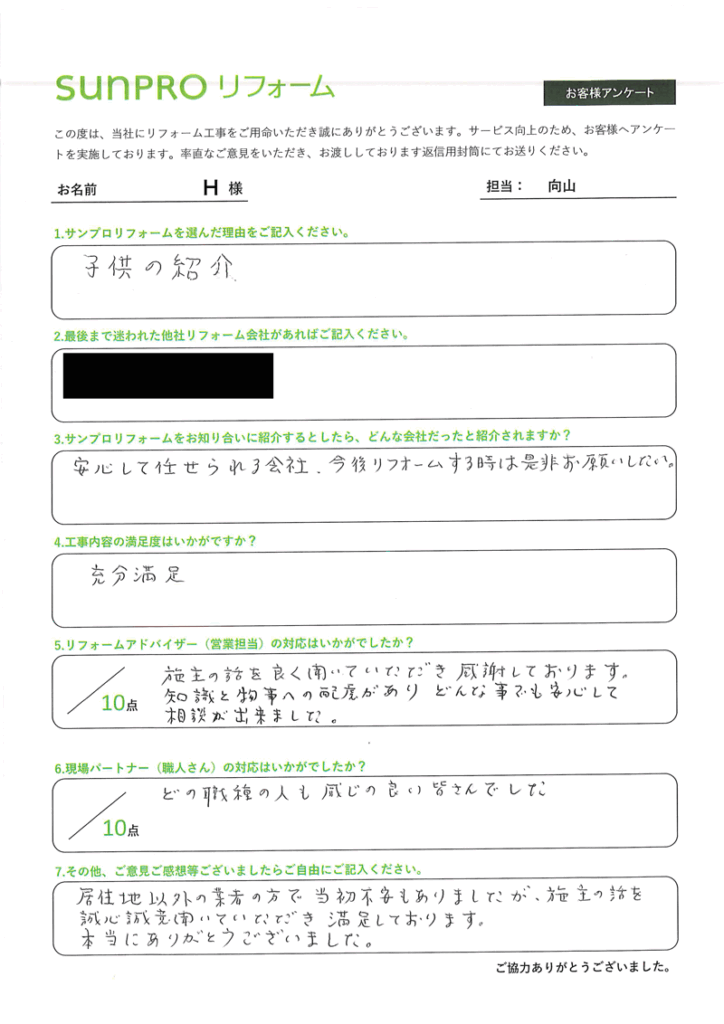 sunPRO リフォーム
お客様アンケート
この度は、当社にリフォーム工事をご用命いただき誠にありがとうございます。サービス向上のため、お客様へアンケー
トを実施しております。率直なご意見をいただき、お渡ししております返信用封筒にてお送りください。
お名前 H 様 担当： 向山
1.サンプロリフォームを選んだ理由をご記入ください。
子供の紹介
2.最後まで迷われた他社リフォーム会社があればご記入ください。
3.サンプロリフォームをお知り合いに紹介するとしたら、どんな会社だったと紹介されますか？
安心して任せられる会社、今後リフォームする時は是非お願いしたい。
4.工事内容の満足度はいかがですか？
充分満足
5.リフォームアドバイザー（営業担当）の対応はいかがでしたか？
施主の話を良く聞いていただき 感謝しております。
知識と物事への配慮があり どんな事でも安心して
相談が出来ました。
10点
6.現場パートナー（職人さん）の対応はいかがでしたか？
どの職種の人も感じの良い皆さんでした
10点
7.その他、ご意見ご感想等ございましたらご自由にご記入ください。
居住地以外の業者の方で当初不安もありましたが、施主の話を
誠心誠意聞いていただき 満足しております。
本当にありがとうございました。
ご協力ありがとうございました。